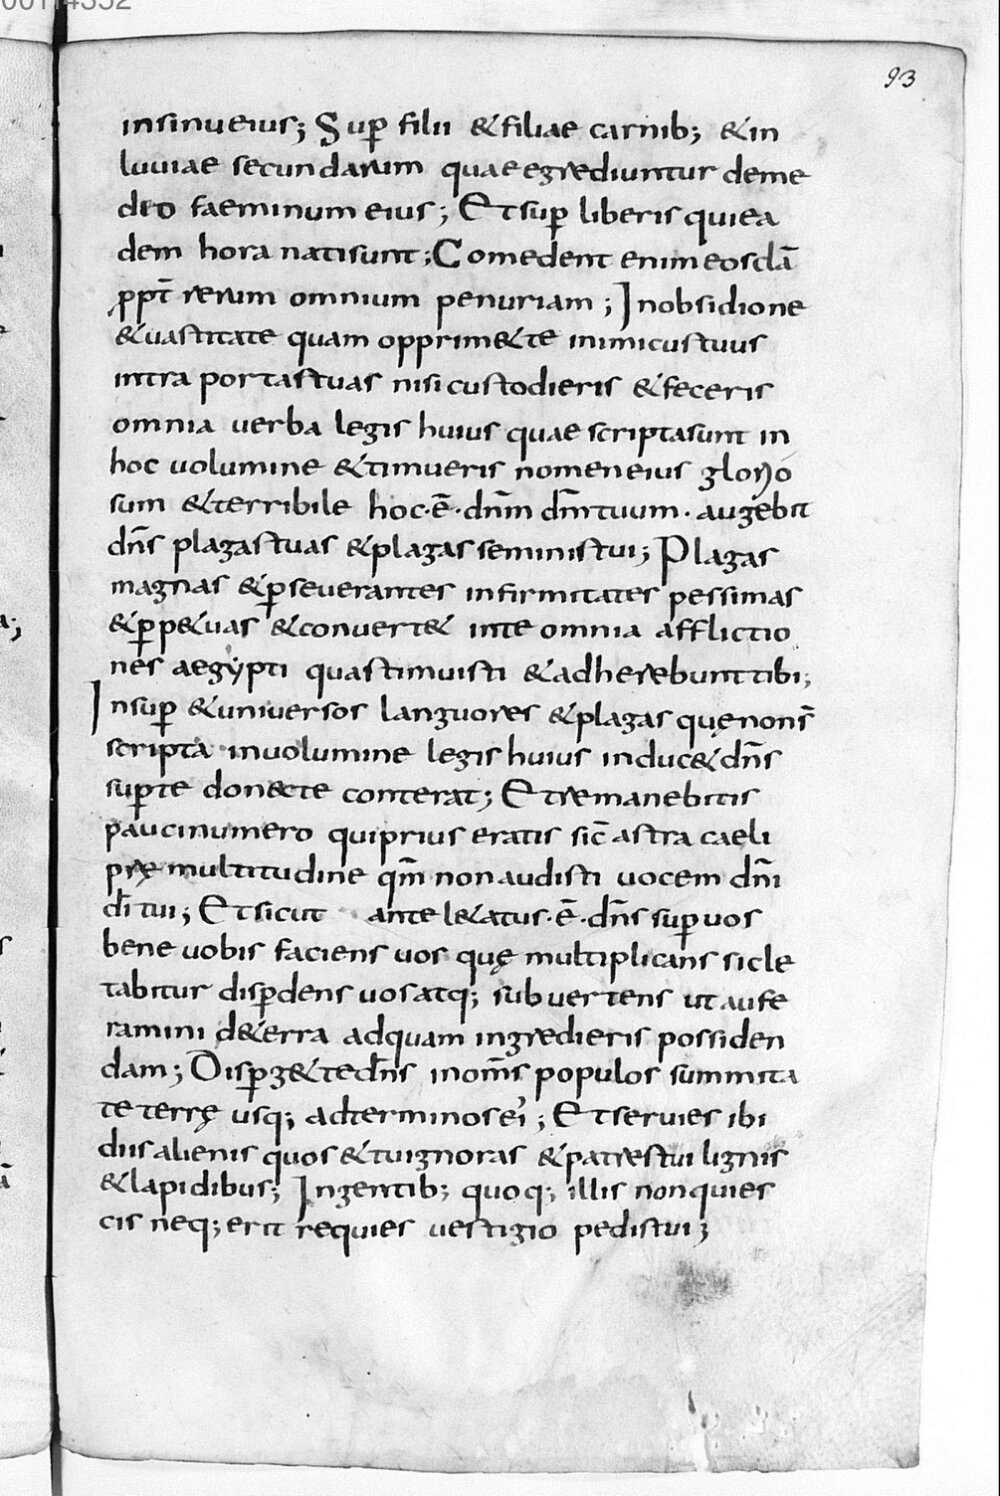 00114352
93
insinu eius; Sup̄ filii &filiae carnib; &in
luuiae secundarum quae egrediuntur deme
dio faeminum eius; Et sup̄ liberis qui ea
dem hora nati sunt; Comedent enim eos clā
ꝓpt̄ rerum omnium penuriam; In obsidione
&uastitate quam opprim&te inimicus tuus
intra portas tuas nisi custodieris &feceris
omnia uerba legis huius quae scripta sunt in
hoc uolumine &timueris nomen eius glorio
sum &terribile hoc·ē·dn̄m dm̄ tuum· augebit
dn̄s plagas tuas &plagas seminis tui; Plagas
magnas &ꝑseuerantes infirmitates pessimas
&ꝑp&uas &conuert& in te omnia afflictio
nes aegypti quas timuisti &adherebunt tibi;
Insup̄ &uniuersos languores &plagas quę non s̄
scripta in uolumine legis huius induc& dn̄s
sup̄ te donec te conterat; Et remanebitis
pauci numero qui prius eratis sic̄ astra caeli
prę multitudine qm̄ non audisti uocem dn̄i
dī tui; Et sicut ante l&atus·ē·dn̄s sup̄ uos
bene uobis faciens uos quę multiplicans sic lę
tabitur disꝑdens uos atq; subuertens ut aufe
ramini de t&erra ad quam ingredieris possiden
dam; Disꝑg& te dn̄s in om̄s populos summita
te terrę usq; ad terminos ei; Et seruies ibi
diis alienis quos &tu ignoras &patres tui lignis
&lapidibus; In gentib; quoq; illis non quies
cis neq; erit requies uestigio pedis tui;